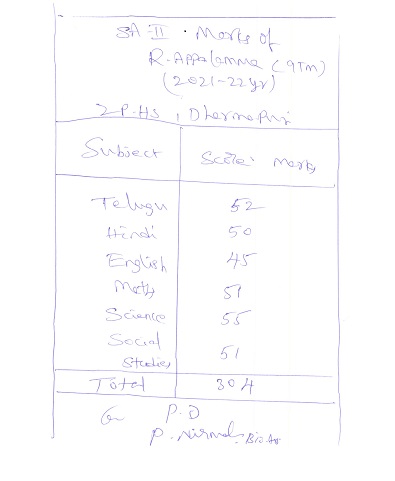 SA-II Marks of
R. Appalamma (9TH)
(2021-22 yr)
ZPHS, Dharmapuri
Subject Marks
Telugu 52
Hindi 50
English 45
Maths 51
Science 55
Social
Studies 51
Total 304
P.D
P. Nirmala